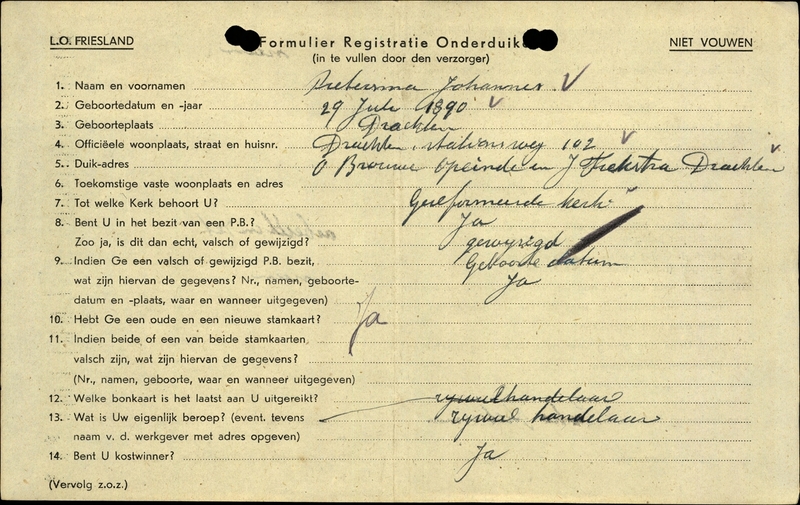 L.O. FRIESLAND
Formulier Registratie Onderduike
NIET VOUWEN
(in te vullen door den verzorger)
1. Naam en voornamen Johannes
2. Geboortedatum en -jaar 29 Juli 1890
3. Geboorteplaats Drachten
4. Officiëele woonplaats, straat en huisnr. Drachten, stationsweg 102
5. Duik-adres O Brouwer Opeinde en J Drachten
6. Toekomstige vaste woonplaats en adres
7. Tot welke Kerk behoort U? Gereformeerde kerk
8. Bent U in het bezit van een P.B.? Ja
Zoo ja, is dit dan echt, valsch of gewijzigd? gewijzigd
9. Indien Ge een valsch of gewijzigd P.B. bezit, Geboorte datum
wat zijn hiervan de gegevens? Nr., namen, geboorte- Ja
datum en -plaats, waar en wanneer uitgegeven)
10. Hebt Ge een oude en een nieuwe stamkaart? Ja
11. Indien beide of een van beide stamkaarten
valsch zijn, wat zijn hiervan de gegevens?
(Nr., namen, geboorte, waar en wanneer uitgegeven)
12. Welke bonkaart is het laatst aan U uitgereikt? rywielhandelaar
13. Wat is Uw eigenlijk beroep? (event. tevens rywiel handelaar
naam v. d. werkgever met adres opgeven)
14. Bent U kostwinner? Ja
(Vervolg z.o.z.)